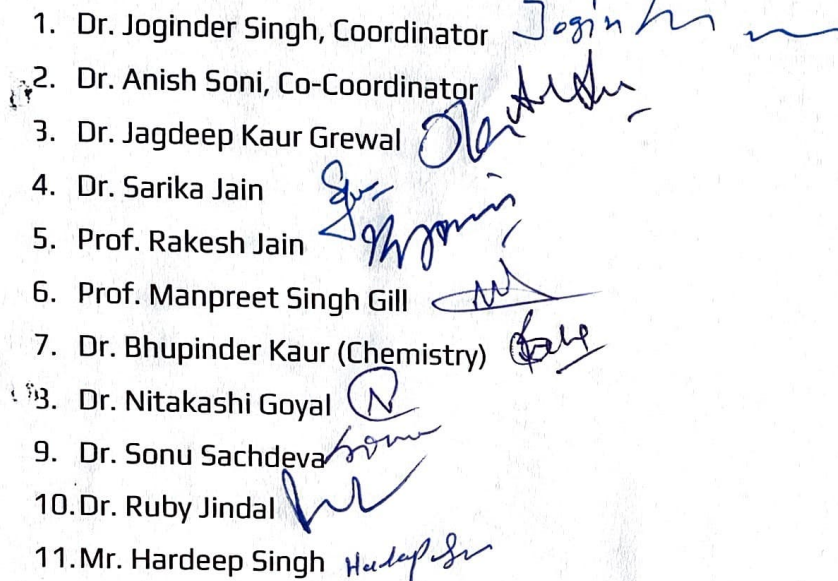 1. Dr. Joginder Singh, Coordinator Jogin
2. Dr. Anish Soni, Co-Coordinator
3. Dr. Jagdeep Kaur Grewal
4. Dr. Sarika Jain
5. Prof. Rakesh Jain
6. Prof. Manpreet Singh Gill
7. Dr. Bhupinder Kaur (Chemistry)
3. Dr. Nitakashi Goyal N
9. Dr. Sonu Sachdeva Sonu
10. Dr. Ruby Jindal
11. Mr. Hardeep Singh